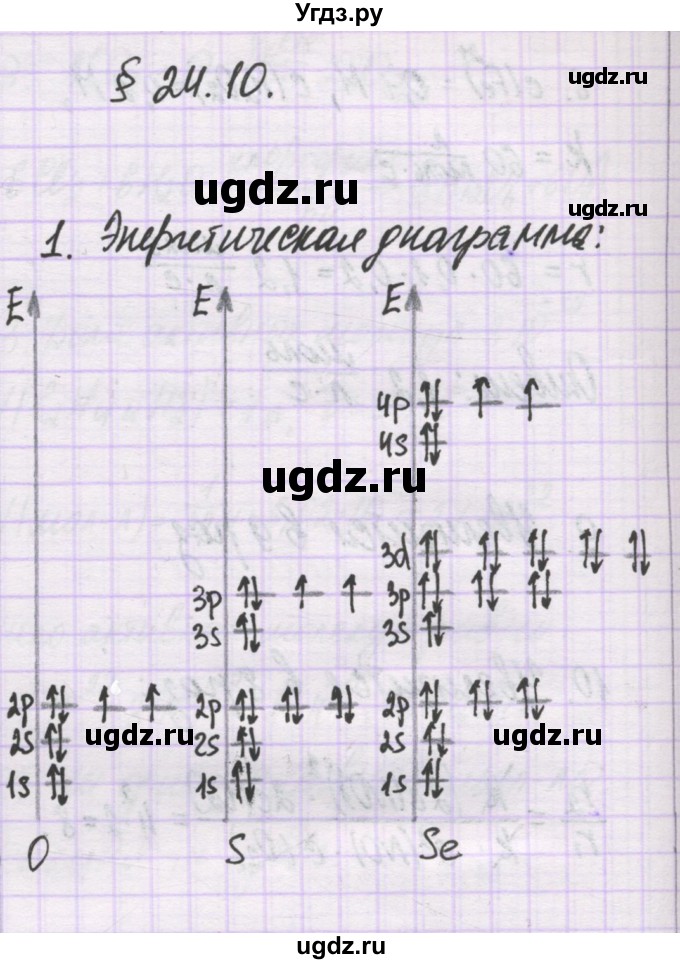 Угдз.ру
ugdz.ru
§ 24.10.
ugdz.ru
ugdz.ru
1. Энергетическая диаграмма:
E E E
4p ↑↓ ↑ ↑
4s ↑↓
ugdz.ru
3d ↑↓ ↑↓ ↑↓ ↑↓ ↑↓
3p ↑↓ ↑ ↑ 3p ↑↓ ↑↓ ↑↓
3s ↑↓ 3s ↑↓
2p ↑↓ ↑ ↑ 2p ↑↓ ↑↓ ↑↓ 2p ↑↓ ↑↓ ↑↓
ugdz.ru ugdz.ru
2s ↑↓ 2s ↑↓ 2s ↑↓
1s ↑↓ 1s ↑↓ 1s ↑↓
O S Se
ugdz.ru
ugdz.ru